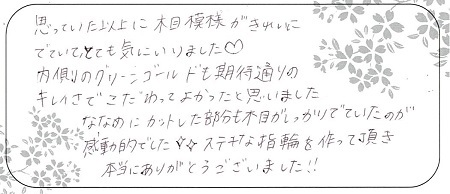 思っていた以上に木目模様がきれいに
でていてとても気にいりました♡
内側のグリーンゴールドも期待通りの
キレイさでこだわってよかったと思いました
ななめにカットした部分も木目がしっかりでていたのが
感動的でした✧✧ステキな指輪を作って頂き
本当にありがとうございました!!